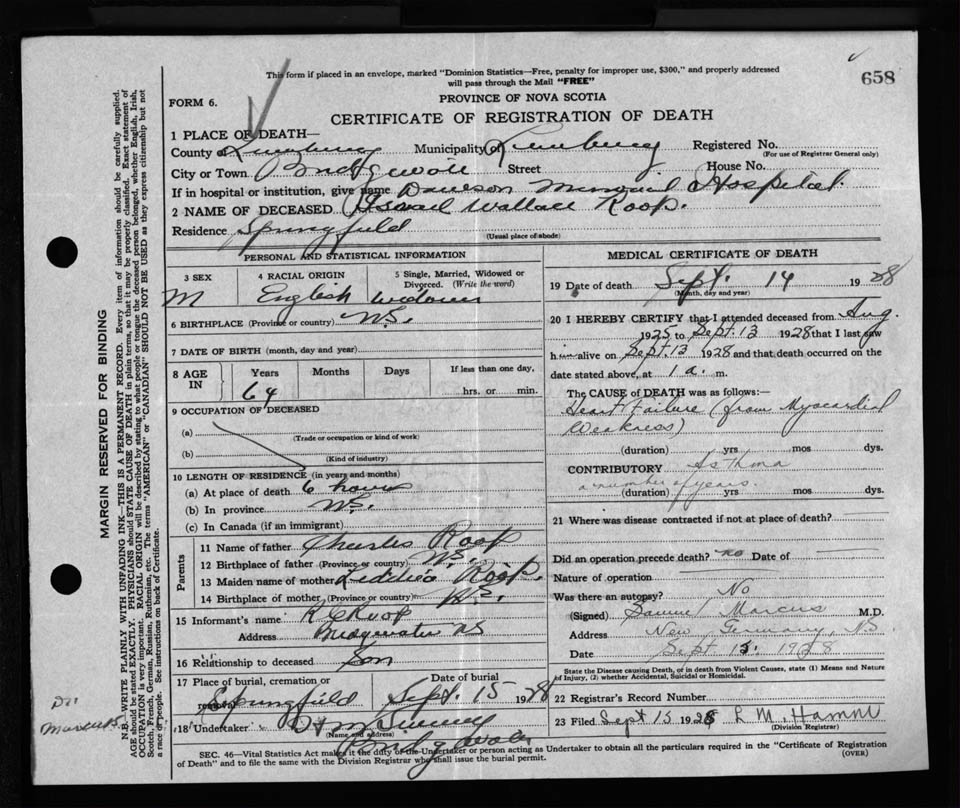 This form if placed in an envelope, marked "Dominion Statistics—Free, penalty for improper use, $300," and properly addressed
will pass through the Mail "FREE"
658
FORM 6.
PROVINCE OF NOVA SCOTIA
CERTIFICATE OF REGISTRATION OF DEATH
1 PLACE OF DEATH—
County of Lunenburg Municipality of Lunenburg Registered No.
(For use of Registrar General only)
City or Town Street House No.
If in hospital or institution, give name Dawson Memorial Hospital.
2 NAME OF DECEASED Israel Wallace Roop.
Residence Springfield
(Usual place of abode)
PERSONAL AND STATISTICAL INFORMATION
3 SEX 4 RACIAL ORIGIN 5 Single, Married, Widowed or Divorced. (Write the word)
M English widower
6 BIRTHPLACE (Province or country) N.S.
7 DATE OF BIRTH (month, day and year)
8 AGE IN Years Months Days If less than one day,
64 hrs. or min.
9 OCCUPATION OF DECEASED
(a)
(Trade or occupation or kind of work)
(b)
(Kind of industry)
10 LENGTH OF RESIDENCE (in years and months)
(a) At place of death 6 hours
(b) In province N.S.
(c) In Canada (if an immigrant)
Parents
11 Name of father Charles Roop
12 Birthplace of father (Province or country) N.S.
13 Maiden name of mother Roop.
14 Birthplace of mother (Province or country) N.S.
15 Informant's name Roop
Address Bridgewater NS
16 Relationship to deceased Son
17 Place of burial, cremation or Date of burial
Springfield Sept. 15 1928
18 Undertaker
(Name and address)
SEC. 46—Vital Statistics Act makes it the duty of the Undertaker or person acting as Undertaker to obtain all the particulars required in the "Certificate of Registration
of Death" and to file the same with the Division Registrar who shall issue the burial permit.
(OVER)
MEDICAL CERTIFICATE OF DEATH
19 Date of death Sept. 14 1928
(Month, day and year)
20 I HEREBY CERTIFY that I attended deceased from Aug.
1925 to Sept. 13 1928 that I last saw
him alive on Sept. 13 1928 and that death occurred on the
date stated above, at 1 a. m.
The CAUSE of DEATH was as follows:
Heart Failure (from Myocardial
Weakness)
(duration) yrs mos dys.
CONTRIBUTORY Asthma
a number of years.
(duration) yrs mos dys.
21 Where was disease contracted if not at place of death?
Did an operation precede death? no Date of
Nature of operation
Was there an autopsy? No
(Signed) Samuel Marcus M.D.
Address New Germany, N.S
Date Sept 1928
State the Disease causing Death, or in death from Violent Causes, state (1) Means and Nature
of Injury, (2) whether Accidental, Suicidal or Homicidal.
22 Registrar's Record Number
23 Filed Sept 15 1928 L M. Hamm
(Division Registrar)
MARGIN RESERVED FOR BINDING
N.B. WRITE PLAINLY WITH UNFADING INK—THIS IS A PERMANENT RECORD. Every item of information should be carefully supplied.
AGE should be stated EXACTLY. PHYSICIANS should STATE CAUSE OF DEATH in plain terms, so that it may be properly classified. Exact statement of
OCCUPATION is very important. RACIAL ORIGIN will be described by stating to what people or tongue the deceased person belonged, whether English, Irish,
Scotch, French, German, Russian, Ruthenian, etc. The terms "AMERICAN" or "CANADIAN" SHOULD NOT BE USED as they express citizenship but not
a race of people. See instructions on back of Certificate.
Dr
Marcus